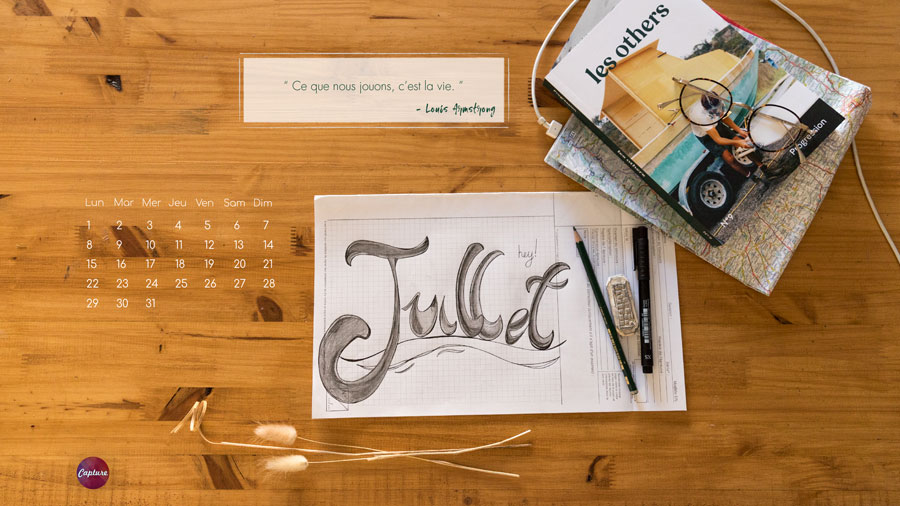 “ Ce que nous jouons, c’est la vie. ”
- Louis Armstrong
les others
Progression
N°9
Lun Mar Mer Jeu Ven Sam Dim
1 2 3 4 5 6 7
8 9 10 11 12 13 14
15 16 17 18 19 20 21
22 23 24 25 26 27 28
29 30 31
hey!
Juillet
Capture